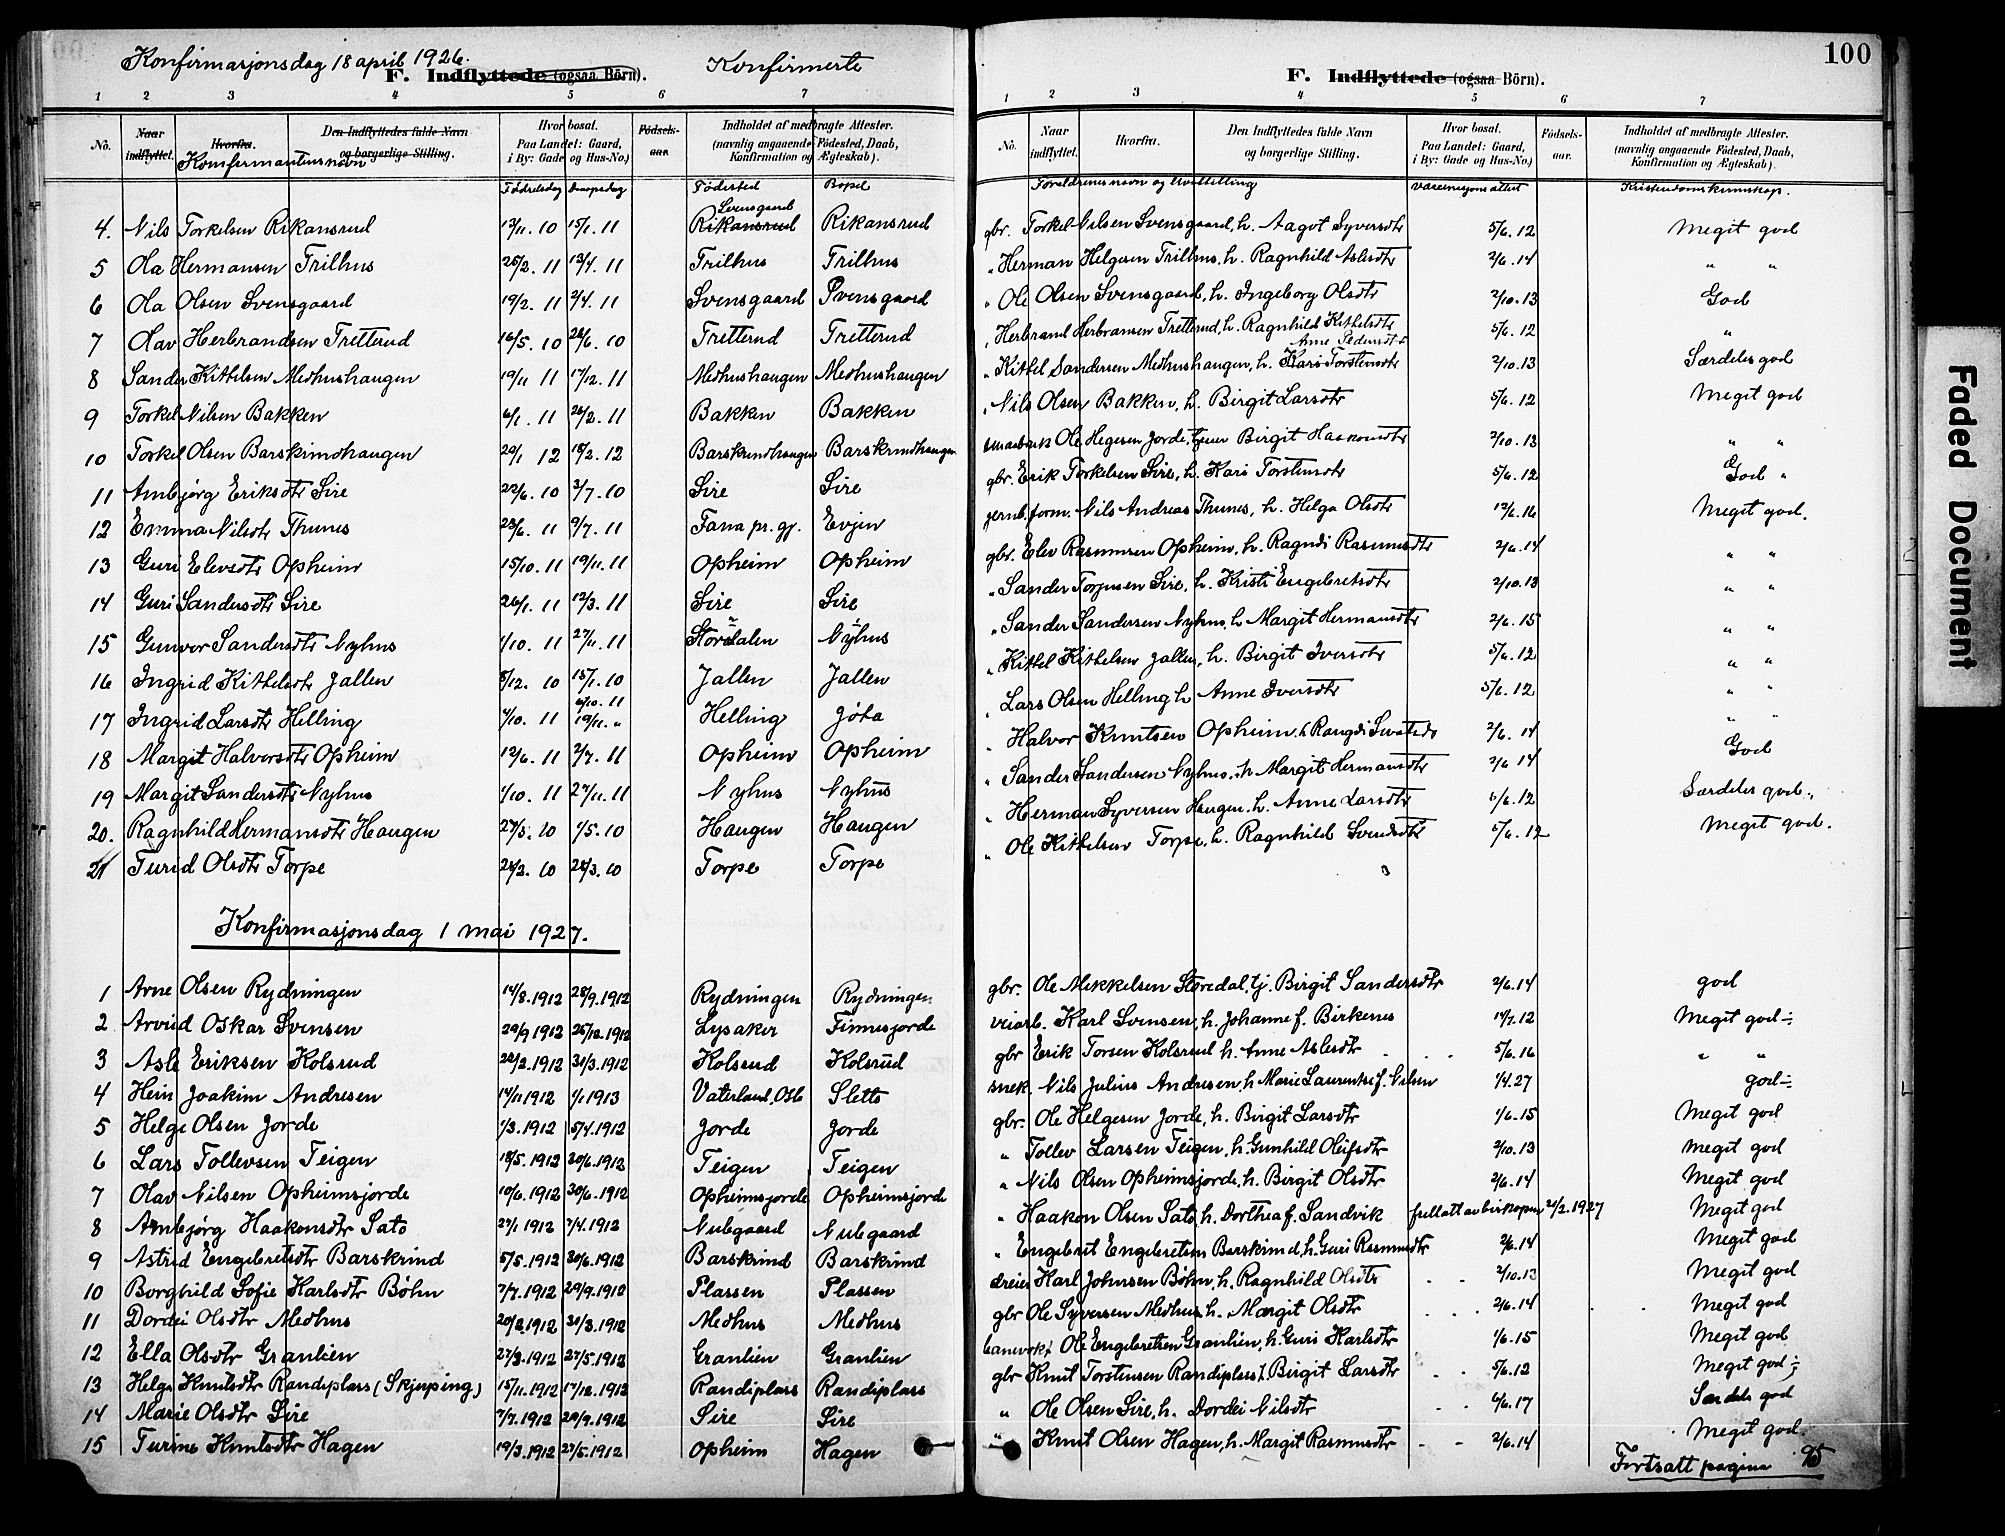 Konfirmasjonsdag 18 april 1926.
Konfirmerte
F. Indflyttede (ogsaa Börn).
1 2 3 4 5 6 7
No. Naar indflyttet. Hvorfra. Den Indflyttedes fulde Navn og borgerlige Stilling. Hvor bosat. Paa Landet: Gaard, i By: Gade og Hus-No.) Födsels-aar. Indholdet af medbragte Attester. (navnlig angaaende Födested, Daab, Konfirmation og Ægteskab).
Konfirmantens navn
Fødselsdag Daapsdag Fødested Bopel
Svensgaard
4. Nils Torkelsen Rikansrud 13/11.10 15/1.11 Rikansrud Rikansrud
5 Ola Hermansen Trilhus 25/2.11 12/4.11 Trilhus Trilhus
6 Ola Olsen Svensgaard 19/2.11 2/4.11 Svensgaard Svensgaard
7 Olav Herbrandsen Tretterud 16/5.10 26/6.10 Tretterud Tretterud
8 Sander Kittelsen Medhushaugen 19/11 11 17/12.11 Medhushaugen Medhushaugen
9 Torkel Nilsen Bakken 6/1.11 26/2.11 Bakken Bakken
10 Torkel Olsen Barskrindhaugen 20/1 12 18/2.12 Barskrindhaugen Barskrindhaugen
11 Ambjørg Eriksdtr Sire 22/6.10 3/7.10 Sire Sire
12 Emma Nilsdtr Thunes 23/6.11 9/7.11 Fana pr.gj. Evjen
13 Guri Elevsdtr Opheim 15/10.11 19/11.11 Opheim Opheim
14 Guri Sandersdtr Sire 26/1.11 12/3.11 Sire Sire
15 Gunvor Sandersdtr Nyhus 1/10.11 27/11.11 Stordalen Nyhus
16 Ingrid Kittelsdtr Jallen 8/12.10 15/1.10 Jallen Jallen
17 Ingrid Larsdtr Helling 4/10.11 19/11. " Helling Jøta
18 Margit Halvorsdtr Opheim 12/6.11 2/7.11 Opheim Opheim
19 Margit Sandersdtr Nyhus 1/10.11 27/11.11 Nyhus Nyhus
20. Ragnhild Hermansdtr Haugen 27/3.10 1/5.10 Haugen Haugen
21 Turid Olsdtr Torpe 24/2.10 28/3.10 Torpe Torpe
Konfirmasjonsdag 1 mai 1927.
1 Arne Olsen Rydningen 14/8.1912 28/9.1912 Rydningen Rydningen
2 Arvid Oskar Svensen 29/9 1912 26/12.1912 Lysaker Finnesjorde
3 Asle Eriksen Kolsrud 22/2.1912 31/3.1912 Kolsrud Kolsrud
4 Hein Joakim Andresen 14/11 1912 1/1 1913 Vaterland, Oslo Sletto
5 Helge Olsen Jorde 1/3.1912 5/4.1912 Jorde Jorde
6 Lars Tollevsen Teigen 18/5.1912 30/6.1912 Teigen Teigen
7 Olav Nilsen Opheimsjorde 10/6.1912 30/6.1912 Opheimsjorde Opheimsjorde
8 Ambjørg Haakonsdtr Sato 27/1 1912 7/4.1912 Nubgaard Nubgaard
9 Astrid Engebretsdtr Barskrind 5/5.1912 30/6.1912 Barskrind Barskrind
10 Borghild Sofie Karlsdtr Bøhn 7/7.1912 29/9.1912 Plassen Plassen
11 Dordei Olsdtr Medhus 20/2.1912 31/3.1912 Medhus Medhus
12 Ella Olsdtr Granlien 27/3.1912 27/5.1912 Granlien Granlien
13 Helga Knutsdtr Randiplass (Skjerping) 15/11.1912 17/12.1912 Randiplass Randiplass
14 Marie Olsdtr Sire 7/7.1912 29/9.1912 Sire Sire
15 Turine Knutsdtr Hagen 19/3.1912 27/5.1912 Opheim Hagen
100
F. Indflyttede (ogsaa Börn).
1 2 3 4 5 6 7
No. Naar indflyttet. Hvorfra. Den Indflyttedes fulde Navn og borgerlige Stilling. Hvor bosat. Paa Landet: Gaard, i By: Gade og Hus-No.) Födsels-aar. Indholdet af medbragte Attester. (navnlig angaaende Födested, Daab, Konfirmation og Ægteskab).
Foreldrenes navn og livstilling Vaccinasjonsattest Kristendomskunnskap.
gbr. Torkel Nilsen Svensgaard, h. Aagot Syversdtr 5/6.12 Meget god
" Herman Helgesen Trilhus, h. Ragnhild Aslesdtr 2/6.14 " "
" Ole Olsen Svensgaard, h. Ingeborg Olsdtr 2/10.13 God
" Herbrand Herbransen Tretterud, h. Ragnhild Kittelsdtr 5/6.12 "
Anne Pedersdtr
" Kittel Sandersen Medhushaugen, h. Kari Torstensdtr 2/10.13 Særdeles god
" Nils Olsen Bakken, h. Birgit Larsdtr 5/6.12 Meget god
Ole Hegesen Jorde, Birgit Haakonsdtr 2/10.13 " "
gbr. Erik Torkelsen Sire, h. Kari Torstensdtr 5/6.12 God "
jernb.form. Nils Andreas Thunes, h. Helga Olsdtr 12/6.16 Meget god.
gbr. Elev Rasmusen Opheim, h. Ragndi Rasmusdtr 2/6.14 " "
" Sander Torgusen Sire, h. Kristi Engebretsdtr 2/10.13 " "
" Sander Sandersen Nyhus, h. Margit Hermansdtr 2/6.15 " "
" Kittel Kittelsen Jallen, h. Birgit Iversdtr 5/6.12 " "
" Lars Olsen Helling h Anne Iversdtr 5/6.12 " "
" Halvor Knutsen Opheim h Rangdi 2/6.14 " "
" Sander Sandersen Nyhus, h. Margit Hermansdtr 2/6 14 God
" Herman Syversen Haugen. h. Anne Larsdtr 5/6.12 Særdeles god.
" Ole Kittelsen Torpe, h. Ragnhild Svendsdtr 5/6.12 Meget god.
gbr. Ole Mekkelsen Storedal, tj. Birgit Sandersdtr 2/6.14 god
veiarb. Karl Svensen, h. Johanne f. Birkenes 14/7.12 Meget god÷
gbr Erik Torsen Kolsrud h. Anne Aslesdtr 5/6.16 " "
snek. Nils Julius Andresen, h. Marie Laurentse f. Nilsen 1/4.27 god÷
gbr. Ole Helgesen Jorde, h. Birgit Larsdtr 1/6.15 Meget god
" Tollev Larsen Teigen, h. Gunhild Oleifsdtr 2/10.13 Meget god
" Nils Olsen Opheimsjorde, h. Birgit Olsdtr 2/6.14 Meget god
" Haakon Olsen Sato, h. Dorthea f. Sandvik fritatt av biskopen 2/2.1927 Meget god
" Engebret Engebretsen Barskrind, h. Guri Rasmusdtr 2/6.14 Meget god
dreier Karl Johnsen Bøhn, h. Ragnhild Olsdtr 2/10.13 Meget god
gbr Ole Syversen Medhus, h. Margit Olsdtr 2/6.14 Meget god
banevokt. Ole Engebretsen Granlien, h. Guri Karlsdtr 1/6.15 Meget god
gbr Knut Torstensen Randiplass, h. Birgit Larsdtr 5/6.12 Meget god÷
" Ole Olsen Sire, h. Dordei Nilsdtr 4/6.17 Særdeles god
" Knut Olsen Hagen, h. Margit Rasmusdtr 2/6.14 Meget god.
Fortsatt pagina 95
Faded Document